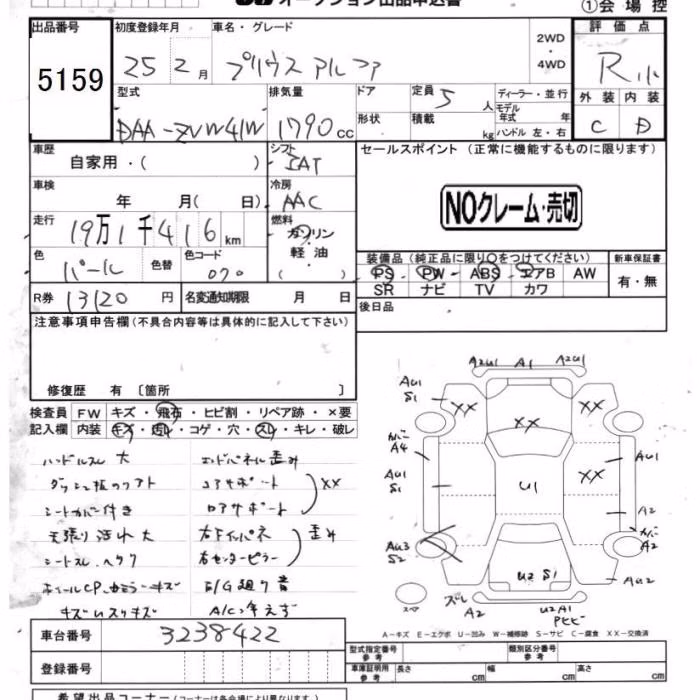 オークション出品申込書
①会場控
出品番号 5159
初度登録年月 25 2月
車名・グレード プリウスアルファ
2WD
・
4WD
評価点 R小
外装 内装
C D
型式 DAA-ZVW41W
排気量 1790cc
ドア
形状
定員 5人
積載 kg
ディーラー・並行
モデル年式 年
ハンドル 左・右
車歴
自家用・( )
シフト IAT
セールスポイント (正常に機能するものに限ります)
NOクレーム・売切
車検 年 月( 日)
冷房 AAC
走行 19万1千416km
燃料
ガソリン
・
軽油
( )
色 パール
色替
色コード 070
装備品(純正品に限り○をつけてください)
PS・PW・ABS・エアB・AW
SR ナビ TV カワ
新車保証書
有・無
R券 13120円
名変通知期限 月 日
後日品
注意事項申告欄(不具合内容等は具体的に記入して下さい)
修復歴 有 〔箇所 〕
検査員記入欄
FW キズ・飛石・ヒビ割・リペア跡・×要
内装 キズ・汚れ・コゲ・穴・スレ・キレ・破レ
ハンドルスレ大
ダッシュ板のリフト
シートカバー付き
天張り汚れ大
シートスレ、ヘタリ
ホイールCP、カミラーキズ
エンドパネル歪み
コアサポート
ロアサポート
XX
右Fインパネ
右センターピラー
歪み
E/G廻り音
A/C冷えず
A2U1 A1 A2U1
AU1
S1
XX XX
XX
カバー
A4
AU1
S1
U1
XX
AU1
A2
カバー
A2
AU3
S2
AU2
U2 S1
スペア
ズレ
A2
U2A1
Pヒビ
A-キズ E-エクボ U-凹み W-補修跡 S-サビ C-腐食 XX-交換済
車台番号 3238422
登録番号
型式指定番号 参考
類別区分番号 参考
車庫証明用 参考
長さ cm 幅 cm 高さ cm
希望出品コーナー(コーナーは各会場により異なります)